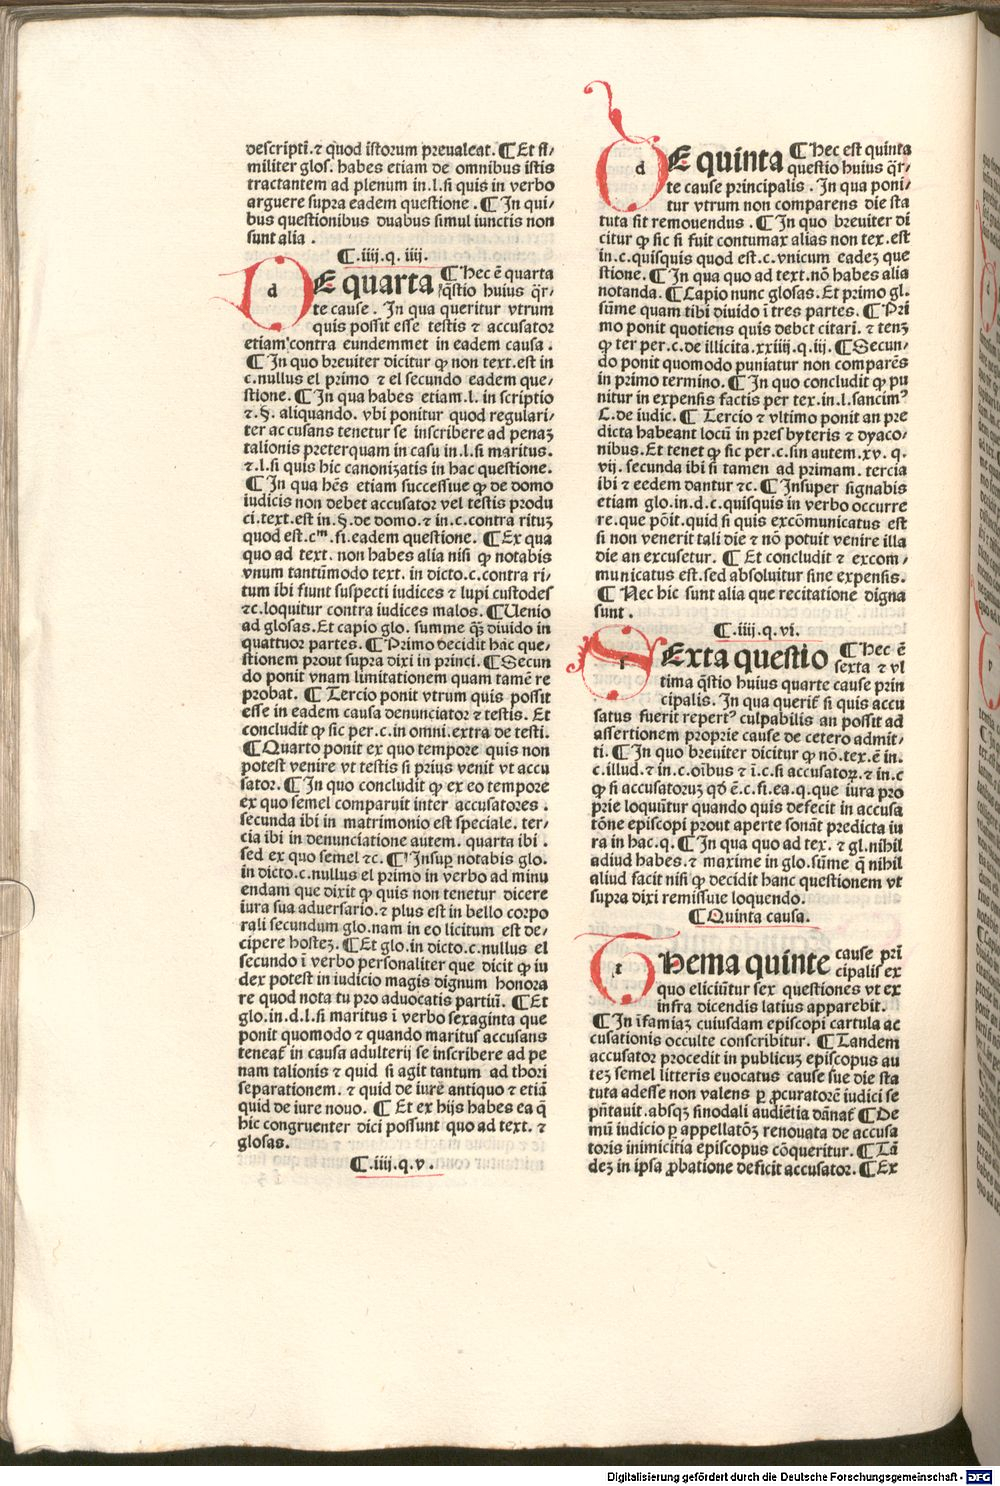 descripti̅.⁊ quod i̅storum preualeat. ¶ Et si⸗
militer glos. habes etiam de omnibus istis
tractantem ad plenum in.l.si quis in verbo
arguere supra eadem questione . ¶ In qui⸗
bus questionibus duabus simul iunctis non
sunt alia .
¶.iiij.q. iiij.
DE quarta ¶ Hec e̅ quarta
q̅stio huius q̅r⸗
te cause . In qua queritur vtrum
quis possit esse testis ⁊ accusator
etiam contra eundemmet in eadem causa .
¶ In quo breuiter dicitur ꝙ non text.est in
c.nullus el primo ⁊ el secundo eadem que⸗
stione. ¶ In qua habes etiam.l. in scriptio
⁊.§. aliquando. vbi ponitur quod regulari⸗
ter accusans tenetur se inscribere ad penaꝫ
talionis preterquam in casu in.l.si maritus.
⁊.l.si quis hic canonizatis in hac questione.
¶ In qua he̅s etiam successiue ꝙ de domo
iudicis non debet accusator vel testis produ
ci.text.est in.§.de domo.⁊ in.c.contra rituꝫ
quod est.cᵐ.si.eadem questione. ¶ Ex qua
quo ad text. non habes alia nisi ꝙ notabis
vnum tantu̅modo text. in dicto.c.contra ri⸗
tum ibi fiunt suspecti iudices ⁊ lupi custodes
⁊c.loquitur contra iudices malos. ¶ Uenio
ad glosas.Et capio glo. summe qꝫ diuido in
quattuor partes. ¶ Primo decidit ha̅c que⸗
stionem prout supra dixi in princi. ¶ Secun
do ponit vnam limitationem quam tame̅ re
probat. ¶ Tercio ponit vtrum quis possit
esse in eadem causa denunciator ⁊ testis. Et
concludit ꝙ sic per.c.in omni.extra de testi.
¶ Quarto ponit ex quo tempore quis non
potest venire vt testis si prius venit vt accu
sator. ¶ In quo concludit ꝙ ex eo tempore
ex quo semel comparuit inter accusatores .
secunda ibi in matrimonio est speciale. ter⸗
cia ibi in denunciatione autem. quarta ibi .
sed ex quo semel ⁊c. ¶ Insup̱ notabis glo.
in dicto.c.nullus el primo in verbo ad minu
endam que dixit ꝙ quis non tenetur dicere
iura sua aduersario.⁊ plus est in bello corpo
rali secundum glo.nam in eo licitum est de⸗
cipere hosteꝫ. ¶ Et glo.in dicto.c.nullus el
secundo i̅ verbo personaliter que dicit ꝙ iu
dex potest in iudicio magis dignum honora
re quod nota tu pro aduocatis partiu̅. ¶ Et
glo.in.d.l.si maritus i̅ verbo sexaginta que
ponit quomodo ⁊ quando maritus accusans
teneat̅ in causa adulterij se inscribere ad pe
nam talionis ⁊ quid si agit tantum ad thori
separationem. ⁊ quid de iure antiquo ⁊ etia̅
quid de iure nouo. ¶ Et ex hijs habes ea q̅
hic congruenter dici possunt quo ad text. ⁊
glosas.
¶.iiij.q.v .
DE quinta ¶ Hec est quinta
questio huius q̅r⸗
te cause principalis . In qua poni⸗
tur vtrum non comparens die sta
tuta sit remouendus . ¶ In quo breuiter di
citur ꝙ sic si fuit contumax alias non tex.est
in.c.quisquis quod est.c.vnicum eadeꝫ que
stione. ¶ In qua quo ad text.no̅ habes alia
notanda. ¶ Capio nunc glosas.Et primo gl.
su̅me quam tibi diuido i̅ tres partes. ¶ Pri
mo ponit quotiens quis debet citari. ⁊ tenꝫ
ꝙ ter per.c.de illicita.xxiiij.q.iij. ¶ Secun⸗
do ponit quomodo puniatur non compare̅s
in primo termino. ¶ In quo concludit ꝙ pu
nitur in expensis factis per tex.in.l.sancimꝰ
C.de iudic. ¶ Tercio ⁊ vltimo ponit an pre
dicta habeant locu̅ in presbyteris ⁊ dyaco⸗
nibus.Et tenet ꝙ sic per.c.sin autem.xv. q.
vij. secunda ibi si tamen ad primam. tercia
ibi ⁊ eedem dantur ⁊c. ¶ Insuper signabis
etiam glo.in.d.c.quisquis in verbo occurre
re.que po̅it.quid si quis exco̅municatus est
si non venerit tali die ⁊ no̅ potuit venire illa
die an excusetur. ¶ Et concludit ⁊ excom⸗
municatus est.sed absoluitur sine expensis.
¶ Nec hic sunt alia que recitatione digna
sunt .
¶.iiij.q.vi.
SExta questio ¶ Hec e̅
sexta ⁊ vl
tima q̅stio huius quarte cause prin
cipalis. In qua querit̅ si quis accu
satus fuerit repertꝰ culpabilis an possit ad
assertionem proprie cause de cetero admit⸗
ti. ¶ In quo breuiter dicitur ꝙ no̅.tex.e̅ in.
c.illud.⁊ in.c.oi̅bus ⁊ i̅.c.si accusatoꝝ.⁊ in.c
ꝙ si accusatoruꝫ qd̅ e̅.c.si.ea.q.que iura pro
prie loqu̅ntur quando quis defecit in accusa
to̅ne episcopi prout aperte sona̅t predicta iu
ra in hac.q. ¶ In qua quo ad tex. ⁊ gl.nihil
adiud habes.⁊ maxime in glo.su̅me q̅ nihil
aliud facit nisi ꝙ decidit hanc questionem vt
supra dixi remissiue loquendo.
¶ Quinta causa.
THema quinte cause pri̅
cipalis ex
quo eliciu̅tur sex questiones vt ex
infra dicendis latius apparebit.
¶ In i̅famiaꝫ cuiusdam episcopi cartula ac
cusationis occulte conscribitur. ¶ Tandem
accusator procedit in publicuꝫ episcopus au
teꝫ semel litteris euocatus cause sue die sta
tuta adesse non valens ꝑ ꝓcuratore̅ iudici se
pn̅tauit.absqꝫ sinodali audie̅tia da̅nat̅ ¶ De
mu̅ iudicio ꝑ appellato̅ꝫ renouata de accusa
toris inimicitia episcopus co̅queritur. ¶ Ta̅
deꝫ in ipsa ꝓbatione deficit accusator. ¶ Ex
Digitalisierung gefördert durch die Deutsche Forschungsgemeinschaft - DFG